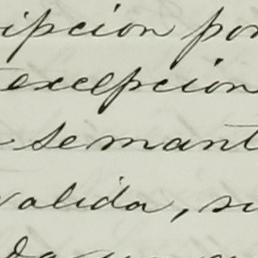 ipcion por
excepcion
semant
valida, si